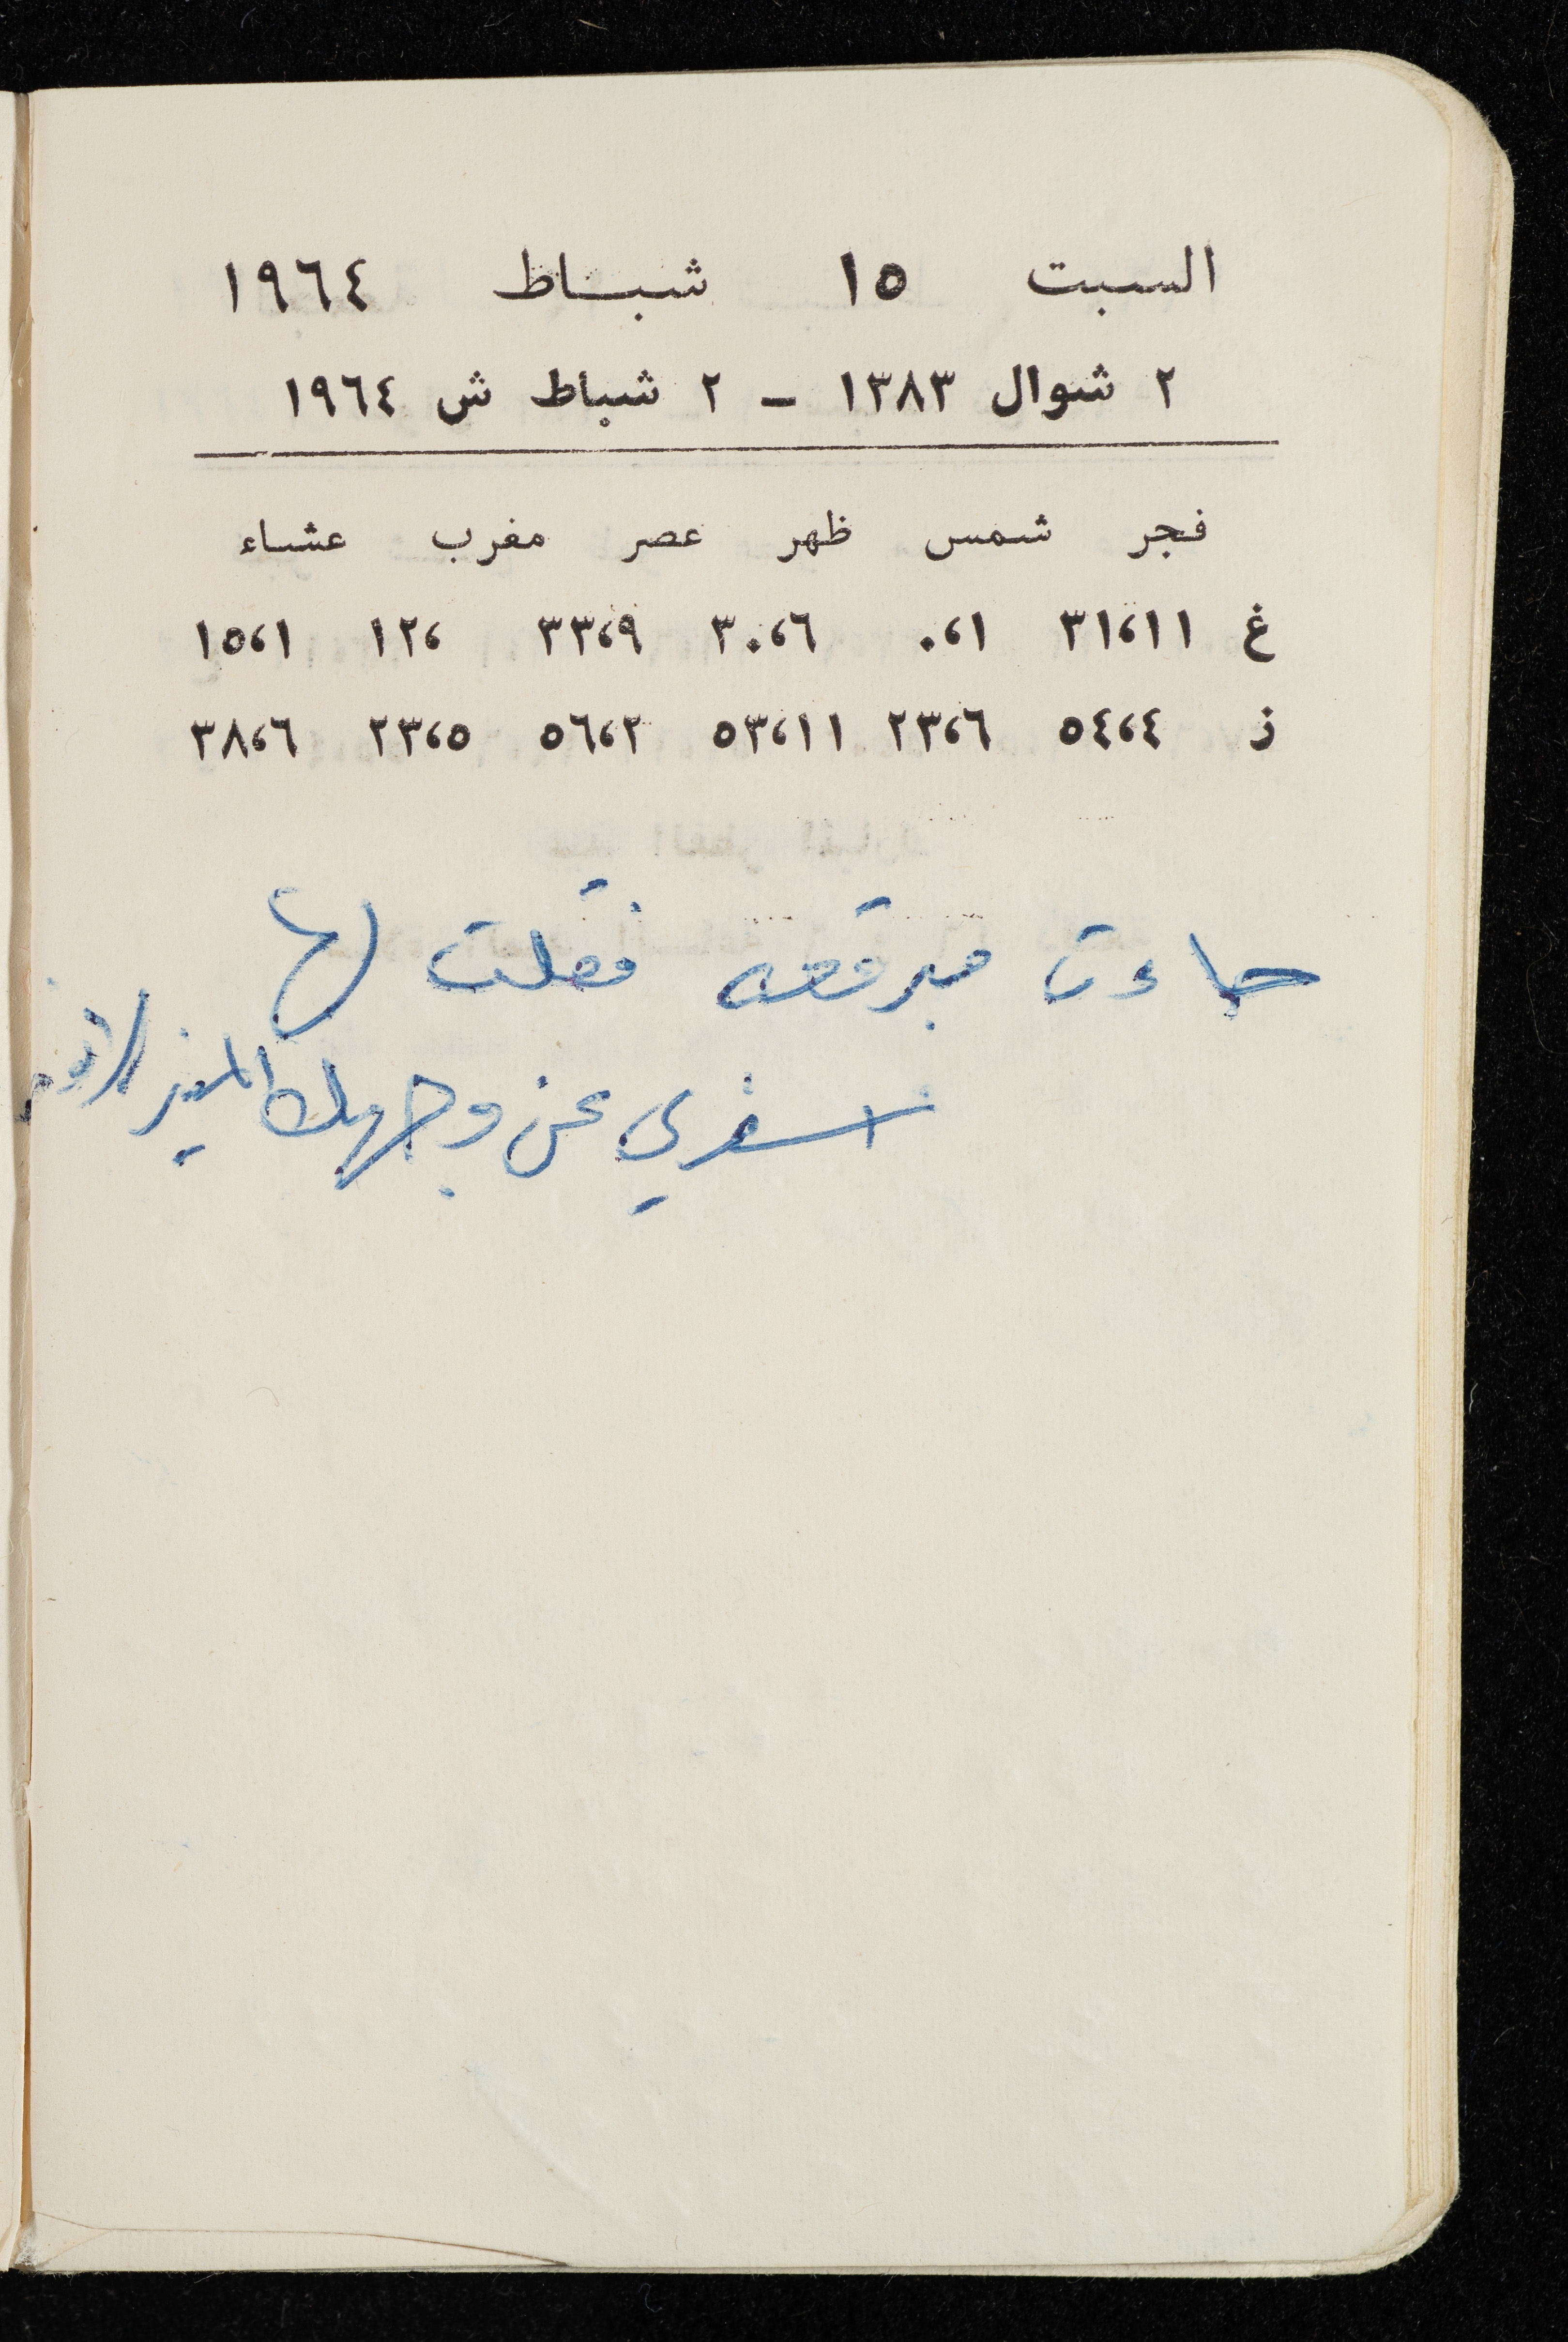 السبت ١٥ شباط ١٩٦٤
٢ شوال ١٣٨٣ - ٢ شباط ش ١٩٦٤
فجر شمس ظهر عصر مغرب عشاء
غ ٣١،١١ ٠،١ ٣٠،٦ ٣٣،٩ ١٢، ١٥،١
ز ٥٤،٤ ٢٣،٦ ٥٣،١١ ٥٦،٢ ٢٣،٥ ٣٨،٦
جاءت مبرقعة فقلت لها
اسفري عن وجهك المنير